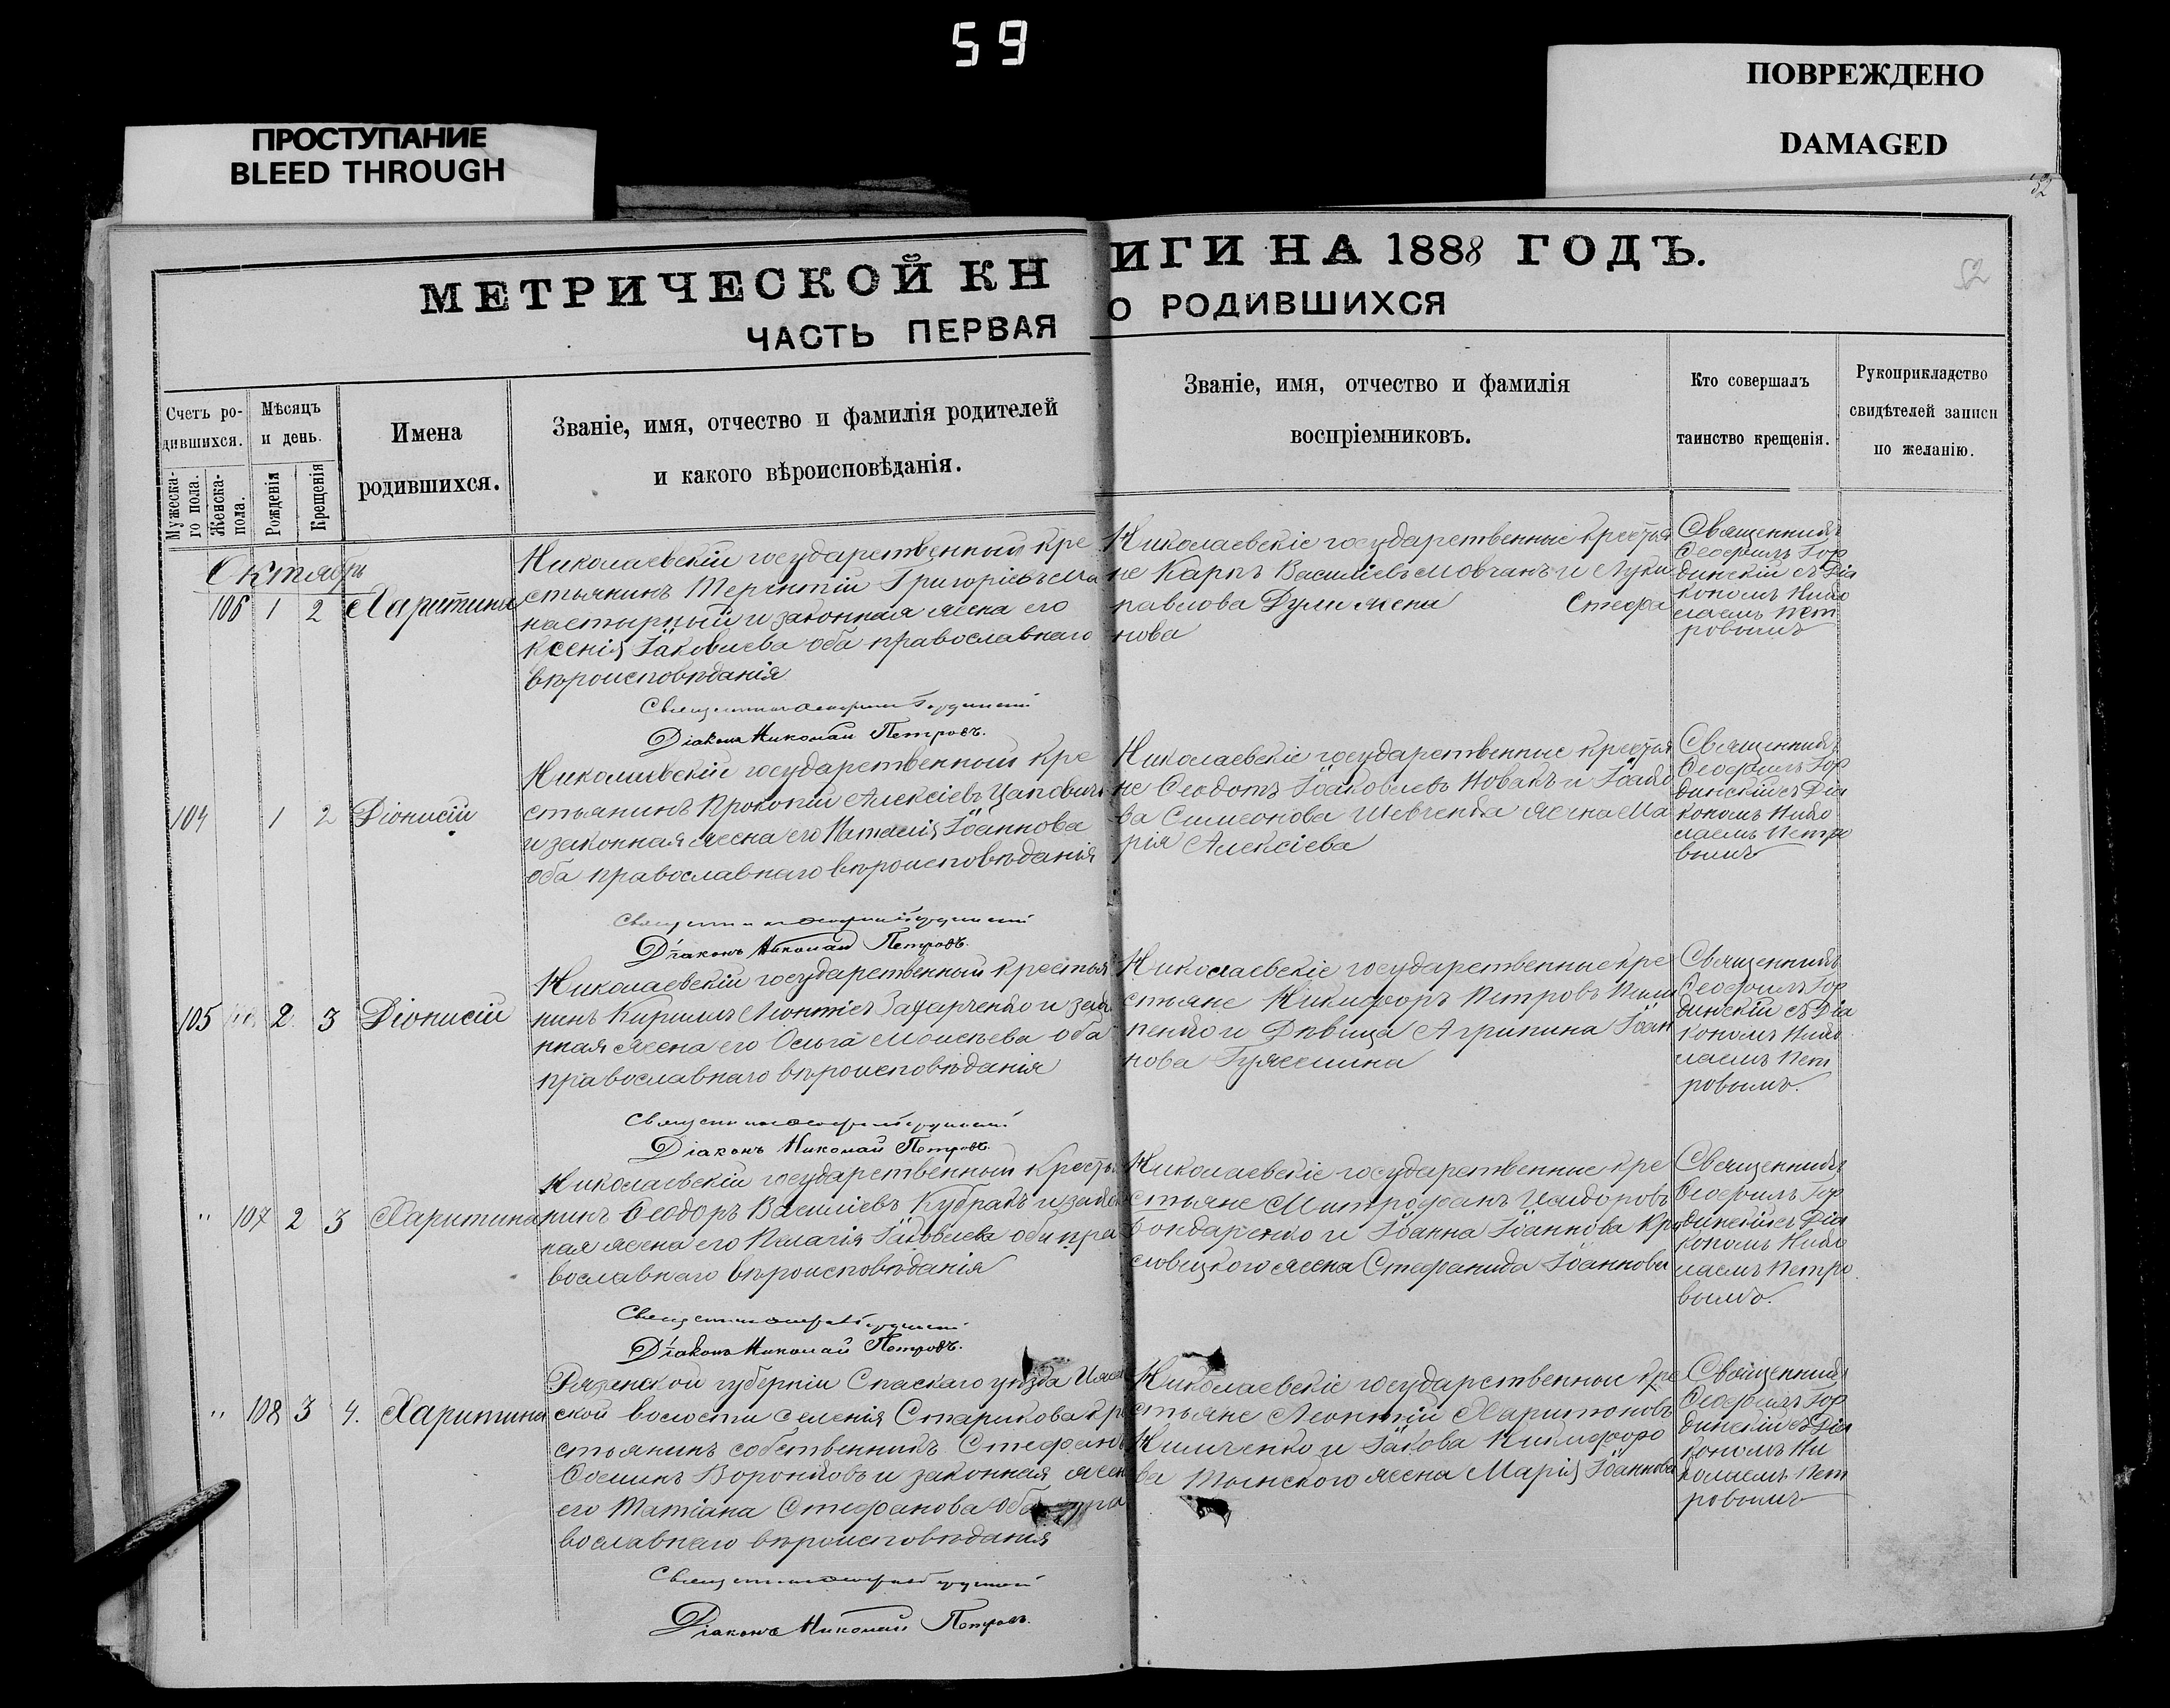 59
ПОВРЕЖДЕНО
DAMAGED
ПРОСТУПАНИЕ
BLEED THROUGH
52
52
МЕТРИЧЕСКОЙ КНИГИ НА 1888 ГОДЪ.
ЧАСТЬ ПЕРВАЯ О РОДИВШИХСЯ
Счетъ ро-
дившихся.
Мужеска-
го пола.
Женска-
пола.
Мѣсяцъ
и день.
Рожденія
Крещенія
Имена
родившихся.
Званіе, имя, отчество и фамилія родителей
и какого вѣроисповѣданія.
Званіе, имя, отчество и фамилія
воспріемниковъ.
Кто совершалъ
таинство крещенія.
Рукоприкладство
свидѣтелей записи
по желанію.
Октябрь
106 1 2 Харитина
Николаевскій государственный кре
стьянинъ Терентій Григоріевъ Мо
настырный и законная жена его
Ксенія Іаковлева оба православнаго
вѣроисповѣданія
Священникъ Ѳеофилъ Гординскій
Діаконъ Николай Петровъ.
Николаевскіе государственные крестья
не Карпъ Василіевъ Мовчанъ и Луки
Павлова жена Стефа
нова
Священникъ
Ѳеофилъ Гор
динскій съ Діа
кономъ Нико
лаемъ Пет
ровымъ
104 1 2 Діонисій
Николаевскій государственный кре
стьянинъ Прокопій Алексіевъ
и законная жена его Наталія Іоаннова
оба православнаго вѣроисповѣданія
Священникъ Ѳеофилъ Гординскій
Діаконъ Николай Петровъ.
Николаевскіе государственные крестья
не Ѳеодотъ Іаковлевъ Новакъ и Іако
ва Симеонова Шевченка жена Ма
рія Алексіева
Священникъ
Ѳеофилъ Гор
динскій съ Діа
кономъ Нико
лаемъ Петро
вымъ
105 2 3 Діонисій
Николаевскій государственный крестья
нинъ Кириллъ Леонтіевъ Захарченко и зако
нная жена его Ольга Моисеева оба
православнаго вѣроисповѣданія
Священникъ Ѳеофилъ Гординскій
Діаконъ Николай Петровъ.
Николаевскіе государственные кре
стьяне Никифоръ Петровъ Пили
пенко и Дѣвица Агрипина Іоан
нова
Священникъ
Ѳеофилъ Гор
динскій съ Діа
кономъ Нико
лаемъ Пет
ровымъ.
" 107 2 3 Харитина
Николаевскій государственный Кресть
нинъ Ѳеодоръ Василіевъ Кубракъ и закон
ная жена его Пелагія Іаковлева оба пра
вославнаго вѣроисповѣданія
Священникъ Ѳеофилъ Гординскій
Діаконъ Николай Петровъ.
Николаевскіе государственные кре
стьяне Митрофанъ Исидоровъ
Бондаренко и Іоанна Іоаннова
жена Стефанида Іоаннова
Священникъ
Ѳеофилъ Гор
динскій съ Діа
кономъ Нико
лаемъ Петро
вымъ.
" 108 3 4. Харитина
Рязанской губерніи Спаскаго уѣзда Ижев
ской волости селенія Старикова кре
стьянинъ собственникъ Стефанъ
Ѳоминъ Воронковъ и законная жена
его Татіана Стефанова оба пра
вославнаго вѣроисповѣданія
Священникъ Ѳеофилъ Гординскій
Діаконъ Николай Петровъ.
Николаевскіе государственные кре
стьяне Леонтій Харитоновъ
и Іакова Никифоро
ва жена Марія Іоаннова
Священникъ
Ѳеофилъ Гор
динскій съ Діа
кономъ Ни
колаемъ Пет
ровымъ